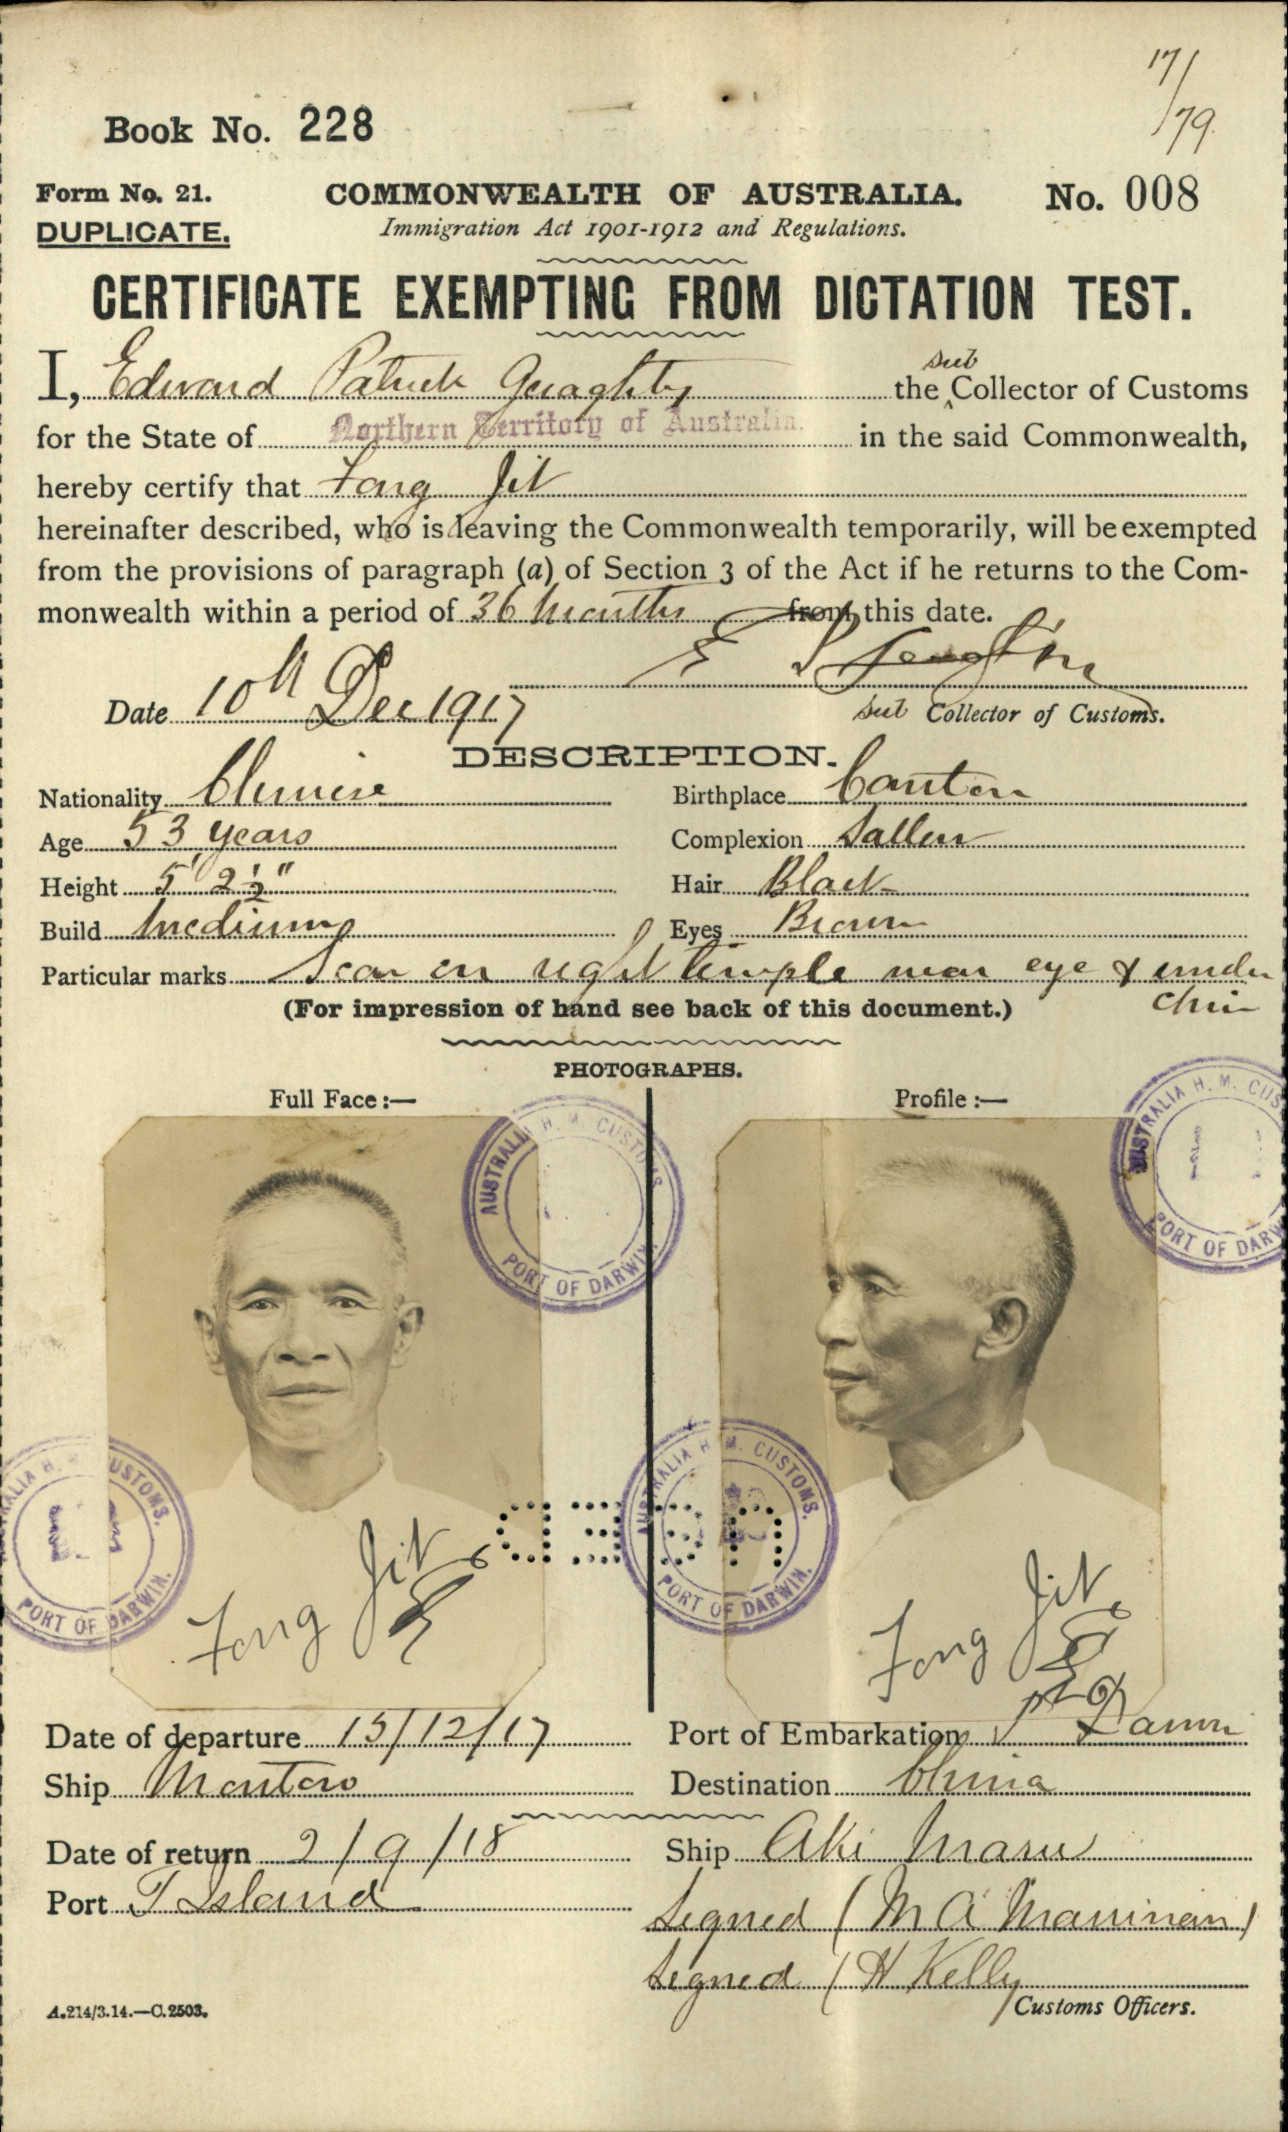 17/79
Book No. 228
Form No. 21.
COMMONWEALTH OF AUSTRALIA.
No. 008
DUPLICATE.
Immigration Act 1901-1912 and Regulations.
CERTIFICATE EXEMPTING FROM DICTATION TEST.
I, Edward Patrick Geraghty the sub Collector of Customs
for the State of Northern Territory of Australia. in the said Commonwealth,
hereby certify that Fong Jit
hereinafter described, who is leaving the Commonwealth temporarily, will be exempted
from the provisions of paragraph (a) of Section 3 of the Act if he returns to the Com-
monwealth within a period of 36 months from this date.
Date 10th Dec 1917
sub Collector of Customs.
DESCRIPTION.
Nationality Chinese Birthplace Canton
Age 53 years Complexion Sallow
Height 5' 2½" Hair Black
Build Medium Eyes Brown
Particular marks Scar on right temple near eye & under
chin
(For impression of hand see back of this document.)
PHOTOGRAPHS.
Full Face:— Profile:—
AUSTRALIA H. M. CUSTOMS
PORT OF DARWIN.
AUSTRALIA H. M. CUS
PORT OF DARW
RALIA H. M. CUSTOMS.
PORT OF DARWIN.
AUSTRALIA H. M. CUSTOMS.
PORT OF DARWIN.
USED
Fong Jit
Fong Jit
Date of departure 15/12/17 Port of Embarkation Pt Darwin
Ship Montoro Destination China
Date of return 2/9/18 Ship Aki Maru
Port T Island
Signed (M A Marrinan)
Signed (H Kelly
Customs Officers.
A.214/3.14.—C.2503.